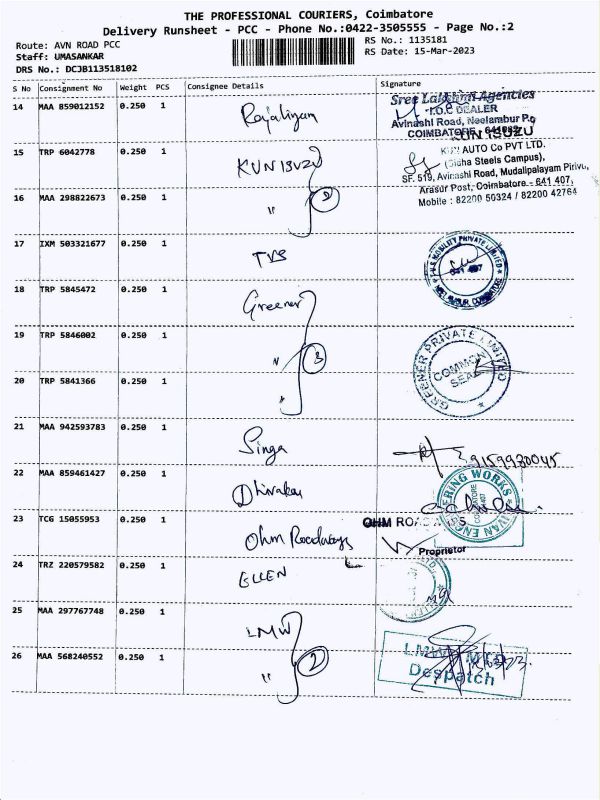 THE PROFESSIONAL COURIERS, Coimbatore
Delivery Runsheet - PCC - Phone No.:0422-3505555 - Page No.:2
Route: AVN ROAD PCC
Staff: UMASANKAR
DRS No.: DCJB113518102
RS No.: 1135181
RS Date: 15-Mar-2023
S No Consignment No Weight PCS Consignee Details Signature
14 MAA 859012152 0.250 1
Sree Lakshmi Agencies
I.O.C DEALER
Avinashi Road, Neelambur P.o
COIMBATORE
15 TRP 6042778 0.250 1 KUN ISUZU
KUN ISUZU
KUN AUTO Co PVT LTD.
(Gisha Steels Campus),
SF. 519, Avinashi Road, Mudalipalayam Pirivu,
Arasur Post, Coimbatore - 641 407,
Mobile : 82200 50324 / 82200 42764
16 MAA 298822673 0.250 1 "
2
17 IXM 503321677 0.250 1 TVS
T.V.S MOBILITY PRIVATE LIMITED
641 407
NEELAMBUR, COIMBATORE
18 TRP 5845472 0.250 1 Greener
19 TRP 5846002 0.250 1 "
3
GREENER PRIVATE LIMITED
COMMON
SEAL
20 TRP 5841366 0.250 1 "
21 MAA 942593783 0.250 1 Singa
9159930045
22 MAA 859461427 0.250 1 Dhivakar
23 TCG 15055953 0.250 1 Ohm Roadways
OHM ROADWAYS
Proprietor
24 TRZ 220579582 0.250 1 ELLEN
25 MAA 297767748 0.250 1 LMW
26 MAA 568240552 0.250 1 "
2
Despatch